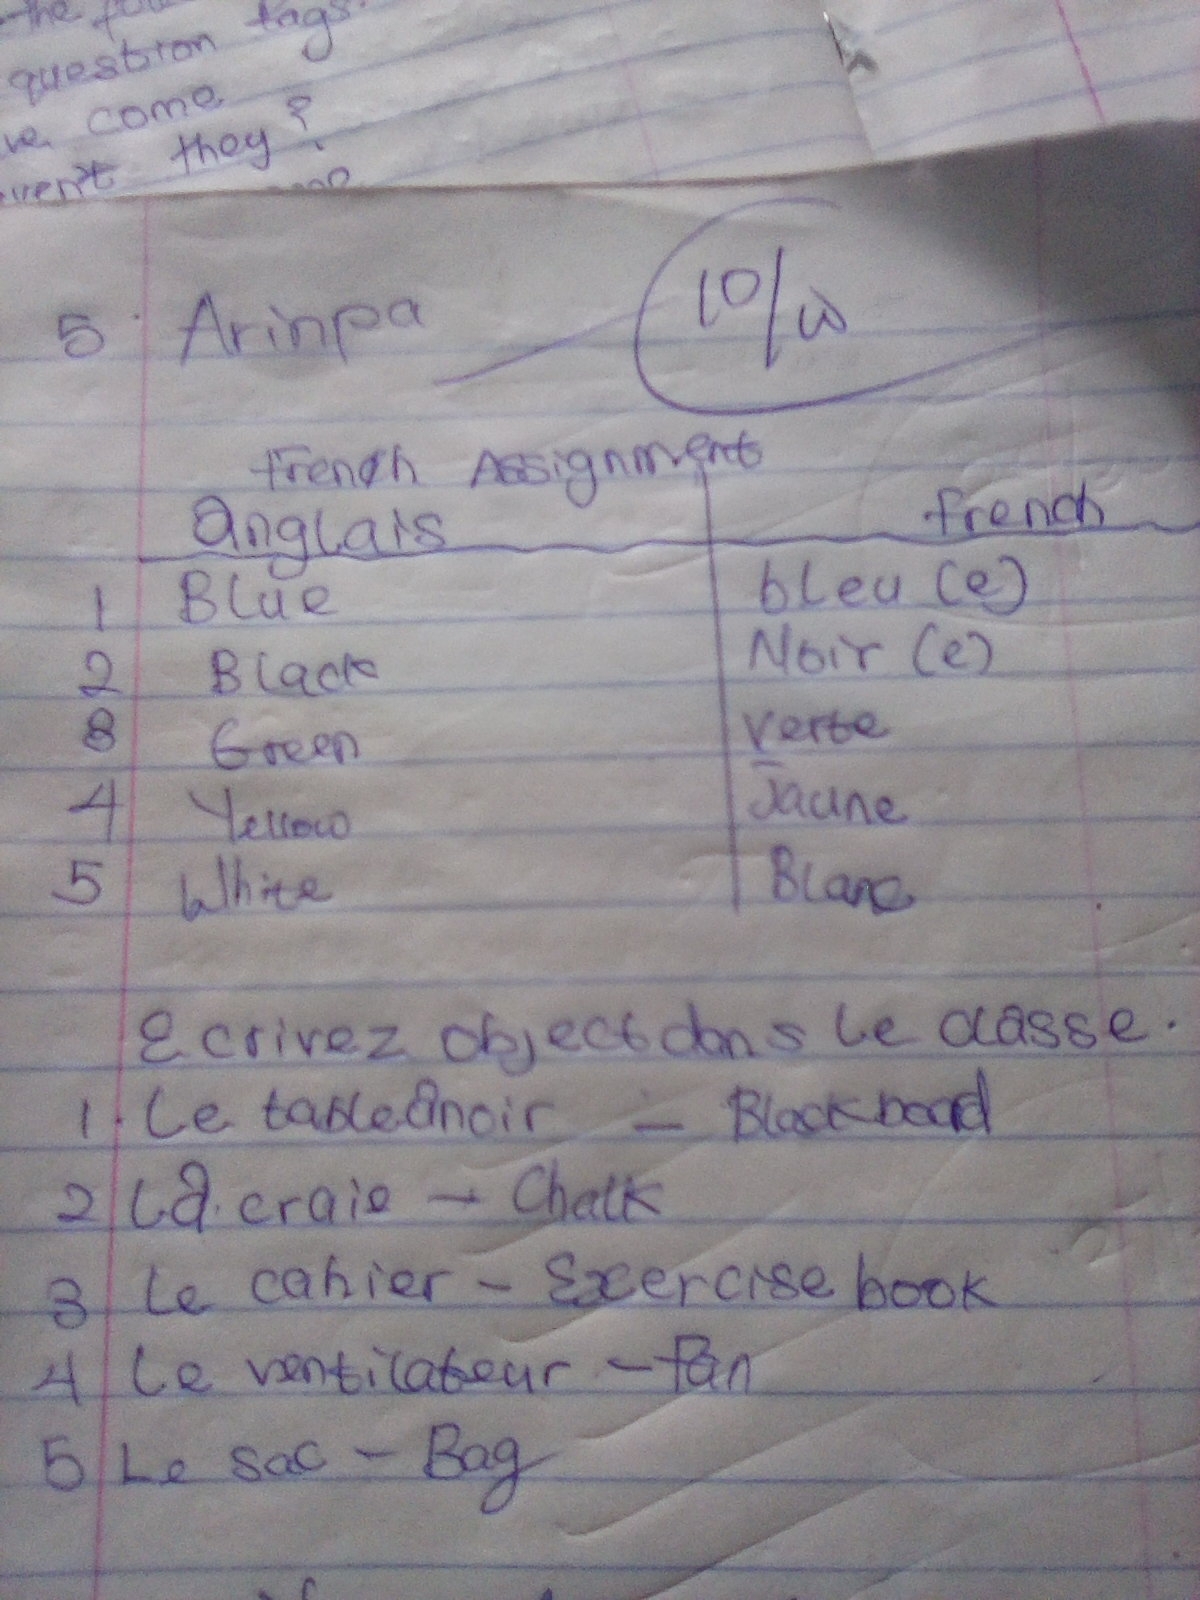 question tags.
ve come
they?
5. Arinpa
10/10
French Assignment
Anglais French
1 Blue bleu (e)
2 Black Noir (e)
3 Green verte
4 Yellow Jaune
5 White Blanc
Ecrivez object dans le classe.
1. Le tableanoir – Blackboard
2 La craie – Chalk
3 Le cahier – Exercise book
4 Le ventilateur – Fan
5 Le sac – Bag